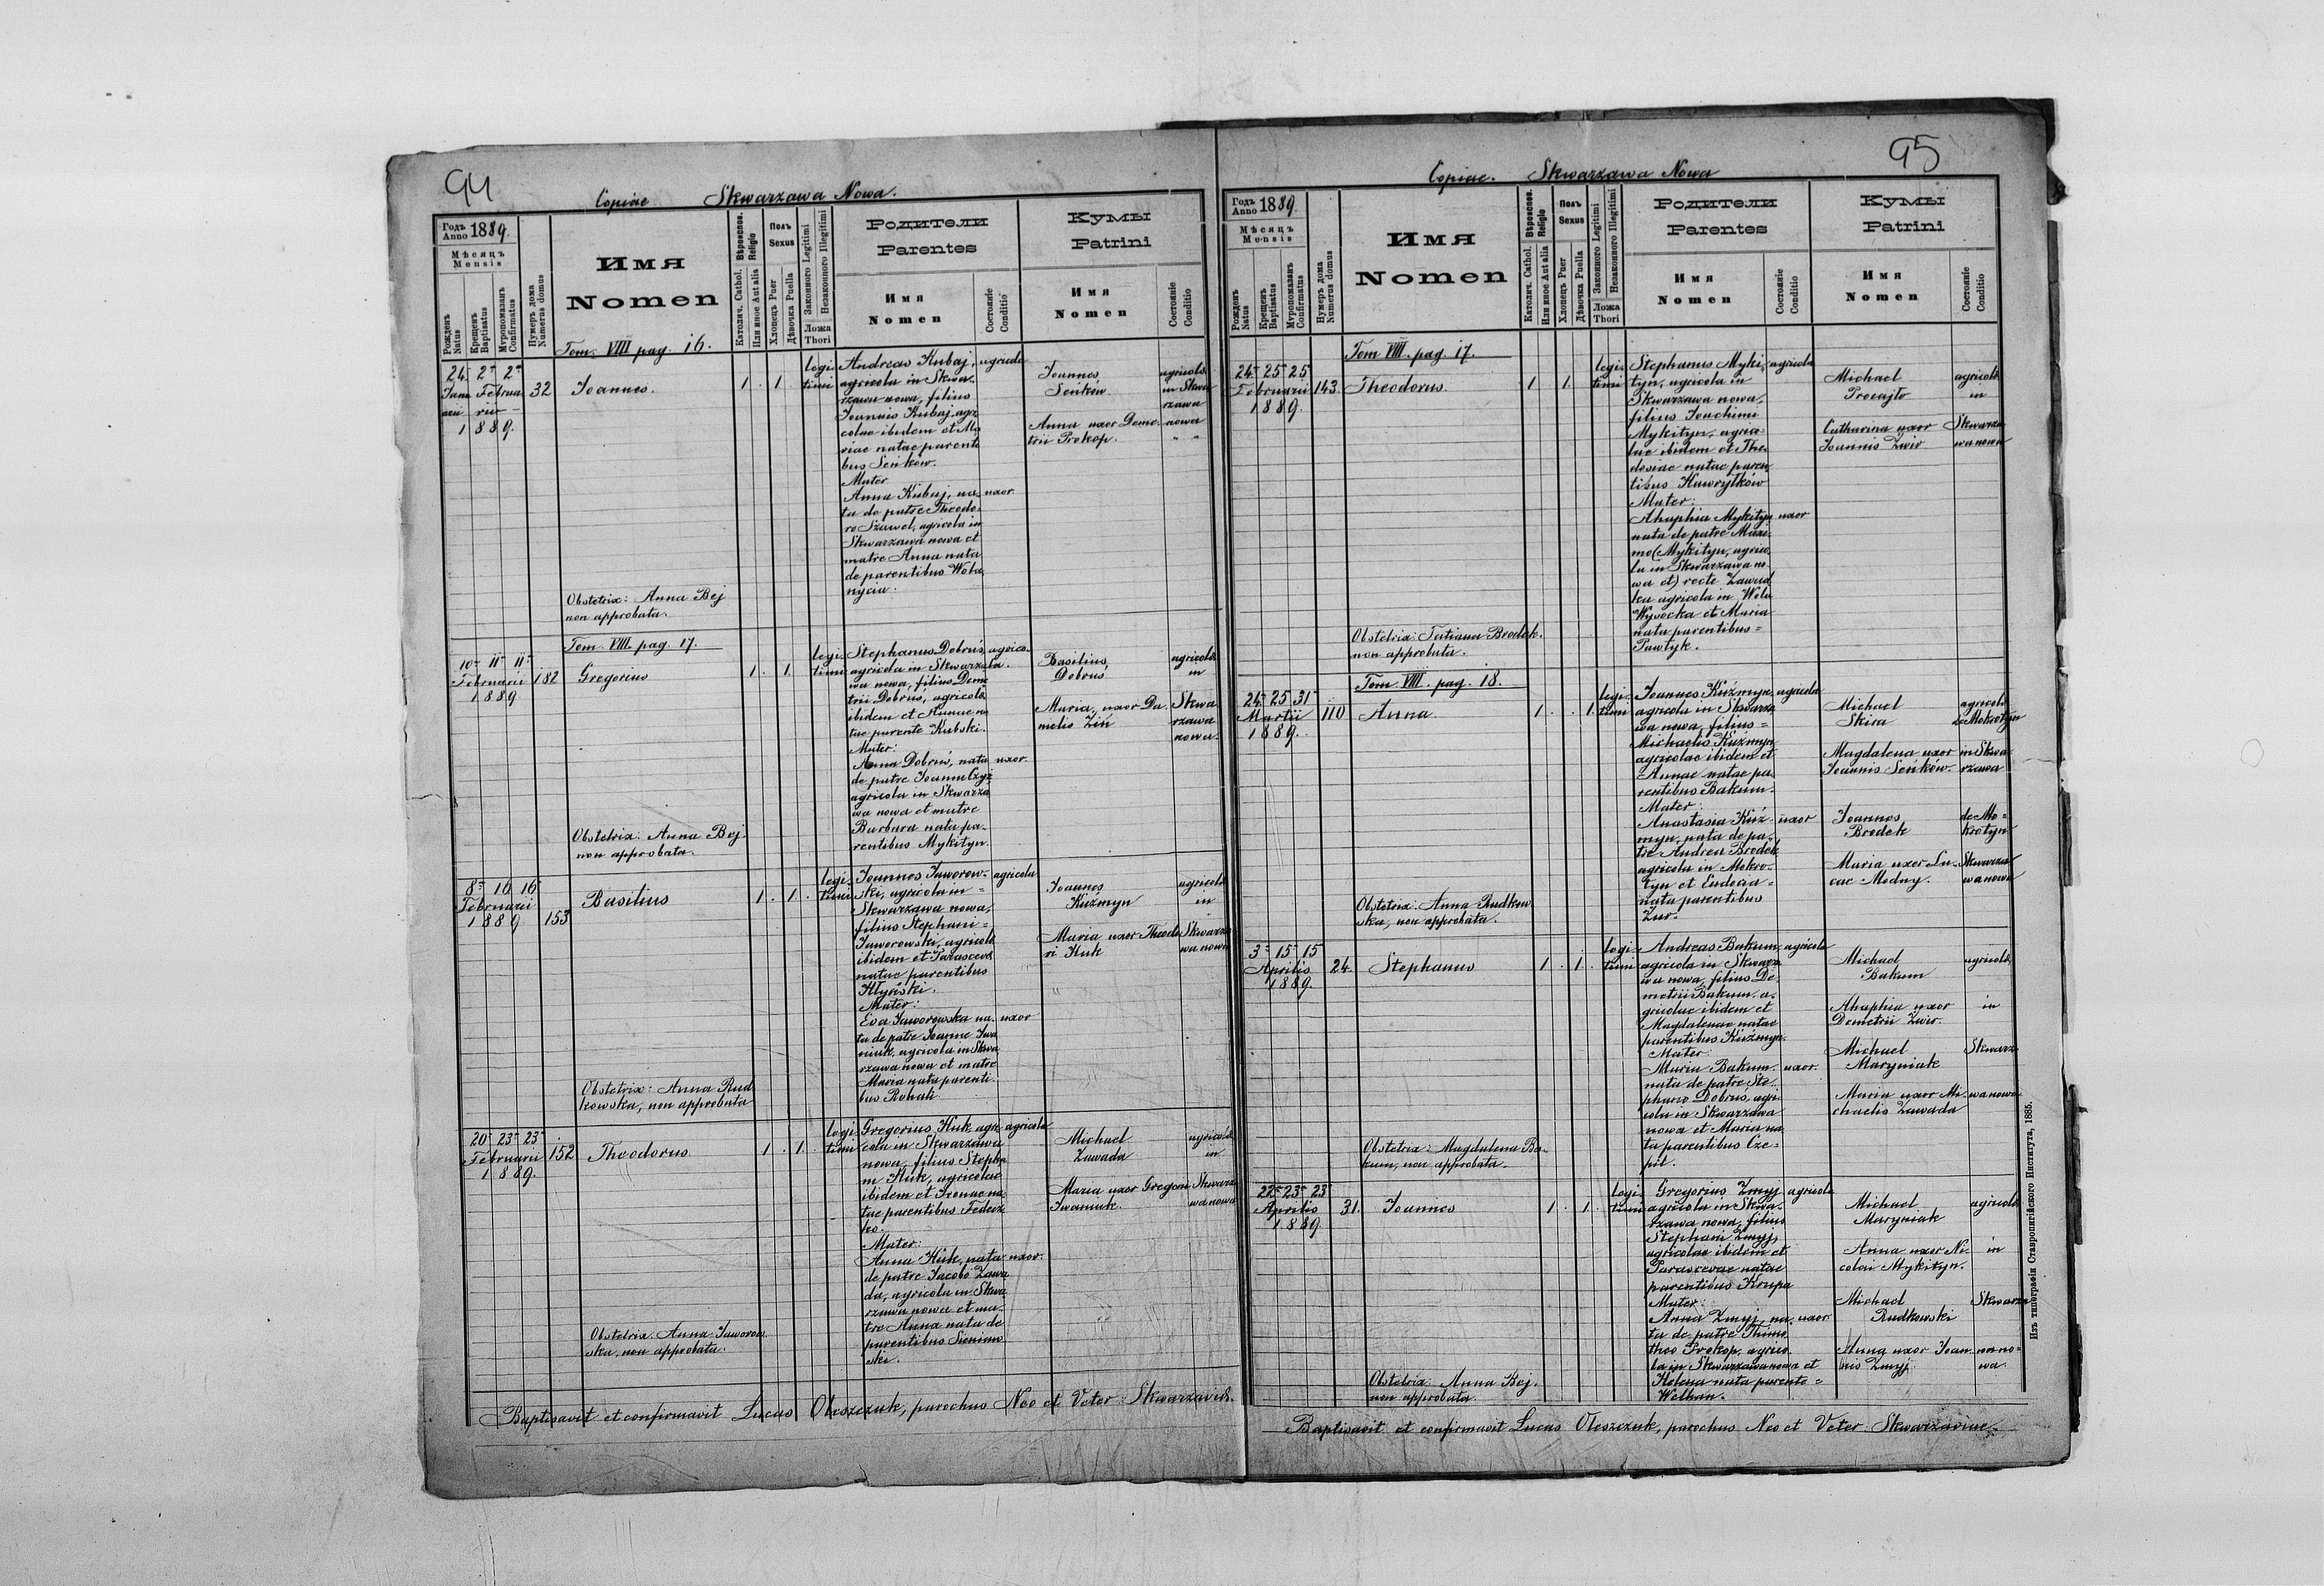 94
Copiae Skwarzawa Nowa.
Годъ Anno 1889.
Мѣсяцъ
Mensis
Рожденъ Natus
Крещенъ Baptisatus
Муропомазанъ Confirmatus
Нумеръ дома Numerus domus
Имя
Nomen
Вѣроиспов. Religio
Католич. Cathol.
Или иное Aut alia
Полъ
Sexus
Хлопецъ Puer
Дѣвочка Puella
Законного Legitimi
Незаконного Illegitimi
Ложа
Thori
Родители
Parentes
Имя
Nomen
Состоянiе
Conditio
Кумы
Patrini
Имя
Nomen
Состоянiе
Conditio
Tom. VIII pag. 16.
24 2 2
Janu Februa
arii rii
1889.
32
Joannes.
1 . 1 .
legi
timi
Andreas Kubaj,
agricola in Skwa-
rzawa nowa, filius
Joannis Kubaj, agri
colae ibidem et Ma
riae natae parenti
bus Seńków.
Mater
Anna Kubaj, na
ta de patre Theodo
ro Szawel, agricola in
Skwarzawa nowa et
matre Anna nata
de parentibus Wola
nycia.
agricola
uxor
Joannes
Seńków.
Anna uxor Deme
trii Prokop.
agricola
in Skwa
rzawa
nowa
" "
Obstetrix: Anna Bej
non approbata.
Tom. VIII. pag. 17.
10 11 11
Februarii
1889
182
Gregorius
1 . 1 .
legi
timi
Stephanus Dobruś,
agricola in Skwarza
wa nowa, filius Deme
trii Dobruś, agricola
ibidem et Annae na
tae parente Kubski.
Mater:
Anna Dobruś, nata
de patre Joanne Czyż
agricola in Skwarza
wa nowa et matre
Barbara nata pa-
rentibus Mykityn.
agrico-
la.
uxor.
Basilius
Dobruś
Maria, uxor Da
nielis Ziń
agricola
in
Skwa
rzawa
nowa.
Obstetrix: Anna Bej
non approbata.
8 16 16
Februarii
1889
153
Basilius
1 . 1 .
legi
timi
Joannes Jaworow-
ski, agricola in =
Skwarzawa nowa,
filius Stephani =
Jaworowski, agricola
ibidem et Parasceva
natae parentibus
Hłyński.
Mater:
Eva Jaworowska na
ta de patre Joanne Iwa
niuk, agricola in Skwa
rzawa nowa et matre
Maria nata parenti
bus Rohali
agricola
uxor
Joannes
Kuźmyn
Maria uxor Theodo
ri Huk
agricola
in
Skwarza
wa nowa
Obstetrix: Anna Rud
kowska, non approbata
20 23 23
Februarii
1889.
152
Theodorus
1 . 1 .
legi
timi
Gregorius Huk agri
cola in Skwarzawa
nowa, filius Stepha
ni Huk, agricolae
ibidem et Irenae na
tae parentibus Fedecz
ko.
Mater:
Anna Huk, nata
de patre Jacobo Zawa
da, agricola in Skwa
rzawa nowa et ma-
tre Anna nata de
parentibus Sienimo
ski.
agricola
uxor.
Michael
Zawada
Maria uxor Gregorii
Iwaniuk.
agricola
in
Skwarza
wa nowa
Obstetrix: Anna Jaworow
ska, non approbata.
Baptisavit et confirmavit Lucas Oleszczuk, parochus Neo et Veter Skwarzaviae.
95
Copiae. Skwarzawa Nowa
Годъ Anno 1889.
Мѣсяцъ
Mensis
Рожденъ Natus
Крещенъ Baptisatus
Муропомазанъ Confirmatus
Нумеръ дома Numerus domus
Имя
Nomen
Вѣроиспов. Religio
Католич. Cathol.
Или иное Aut alia
Полъ
Sexus
Хлопецъ Puer
Дѣвочка Puella
Законного Legitimi
Незаконного Illegitimi
Ложа
Thori
Родители
Parentes
Имя
Nomen
Состоянiе
Conditio
Кумы
Patrini
Имя
Nomen
Состоянiе
Conditio
Tom VIII. pag. 17.
24 25 25
Februarii
1889.
143
Theodorus
1 1
legi
timi
Stephanus Myki
tyn, agricola in
Skwarzawa nowa,
filius Joachimi
Mykityn, agrico-
lae ibidem et The
dosiae natae paren
tibus Hawrylków
Mater:
Ahaphia Mykityn
nata de patre Maxi
mo (Mykityn, agrico
la in Skwarzawa no
wa et) recte Zawad
ka agricola in Wola
Wysocka et Maria
nata parentibus =
Pawłyk.
agricola
uxor
Michael
Procajło
Catharina uxor
Joannis Żwir
agricola
in
Skwarza
wa nowa
Obstetrix: Tatiana Brodek.
non approbata.
Tom. VIII. pag. 18.
24 25 31
Martii
1889.
110
Anna.
1 . . 1
legi
timi
Joannes Kuźmyn
agricola in Skwarza
wa nowa, filius =
Michaelis Kuźmyn
agricolae ibidem et
Annae natae pa
rentibus Bakum.
Mater:
Anastasia Kuź-
myn, nata de pa-
tre Andrea Brodek
agricola in Mokro-
tyn et Eudocia =
nata parentibus
Żur.
agricola
uxor
Michael
Skira
Magdalena uxor
Joannis Seńków.
Joannes
Brodek
Maria uxor Lu-
cae Medny.
agricola
de Mokrotyn
in Skwa
rzawa
de Mo-
krotyn
Skwarza
wa nowa
Obstetrix: Anna Rudkow
ska, non approbata.
3 15 15
Aprilis
1889.
24.
Stephanus
1 . 1 .
legi
timi
Andreas Bakum
agricola in Skwarza
wa nowa, filius De
metrii Bakum, a-
gricolae ibidem et
Magdalenae natae
parentibus Kuźmyn.
Mater:
Maria Bakum
nata de patre Ste
phano Dobruś, agri
cola in Skwarzawa
nowa et Maria na
ta parentibus Cze-
pil.
agricola
uxor.
Michael
Bakum
Ahaphia uxor
Demetrii Żwir.
Michael
Maryniak
Maria uxor Mi-
chaelis Zawada
agricola
in
Skwarza
wa nowa
Obstetrix: Magdalena Ba-
kum, non approbata.
22 23 23
Aprilis
1889
31.
Joannes
1 . 1 .
legi
timi
Gregorius Zmyj
agricola in Skwa-
rzawa nowa, filius
Stephani Zmyj,
agricolae ibidem et
Parascevae natae
parentibus Krupa
Mater:
Anna Zmyj, na
ta de patre Thimo
theo Prokop, agrico
la in Skwarzawa nowa et
Helena nata parente =
Welhan.
agricola
uxor
Michael
Maryniak
Anna uxor Ni-
colai Mykityn.
Michael
Rudkowski
Anna uxor Joan
nis Zmyj.
agricola
in
Skwarza
wa no-
wa.
Obstetrix: Anna Bej.
non approbata.
Baptisavit et confirmavit Lucas Oleszczuk, parochus Neo et Veter Skwarzaviae.
Изъ типографiи Ставропигiйского Института, 1885.